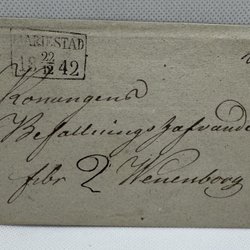 MARIESTAD
18 22/12 42
Konungens
Befallningshafvande
för 2 Wenersborg